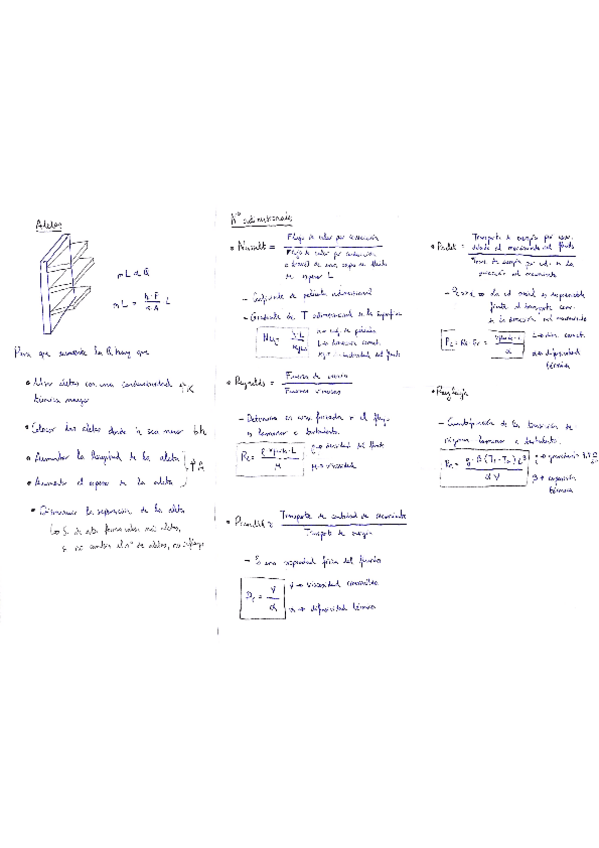 Aletas
mL α Q
mL = h·P / k·A L
Para que aumente la Q hay que
• Usar aletas con una conductividad
térmica mayor ↑K
• Colocar las aletas donde h sea menor
• Aumentar la longitud de la aleta
• Aumentar el espesor de la aleta
• Disminuir la separación de las aletas
si no cambia el nº de aletas, no influye
Nº adimensionales
• Nusselt = Flujo de calor por convección
Flujo de calor por conducción
a través de una capa de fluido
de espesor L
– Coeficiente de película adimensional
– Gradiente de T adimensional en la superficie
h → coef. de película
L → dimensión caract.
• Reynolds = Fuerzas de inercia
Fuerzas viscosas
– Determina en conv. forzada si el flujo
es laminar o turbulento.
ρ → densidad del fluido
μ → viscosidad
• Prandtl = Transporte de cantidad de movimiento
Transporte de energía
– Es una propiedad física del fluido
Pr = ν / α
ν → viscosidad cinemática
α → difusividad térmica
• Peclet = Transporte de energía por conv.
debida al movimiento del fluido
Trans. de energía por cond. en la
dirección del movimiento
en la dirección del movimiento
L → dim. caract.
α → difusividad
térmica
• Rayleigh
– Cuantificación de la transición de
régimen laminar a turbulento.
β → expansión
térmica